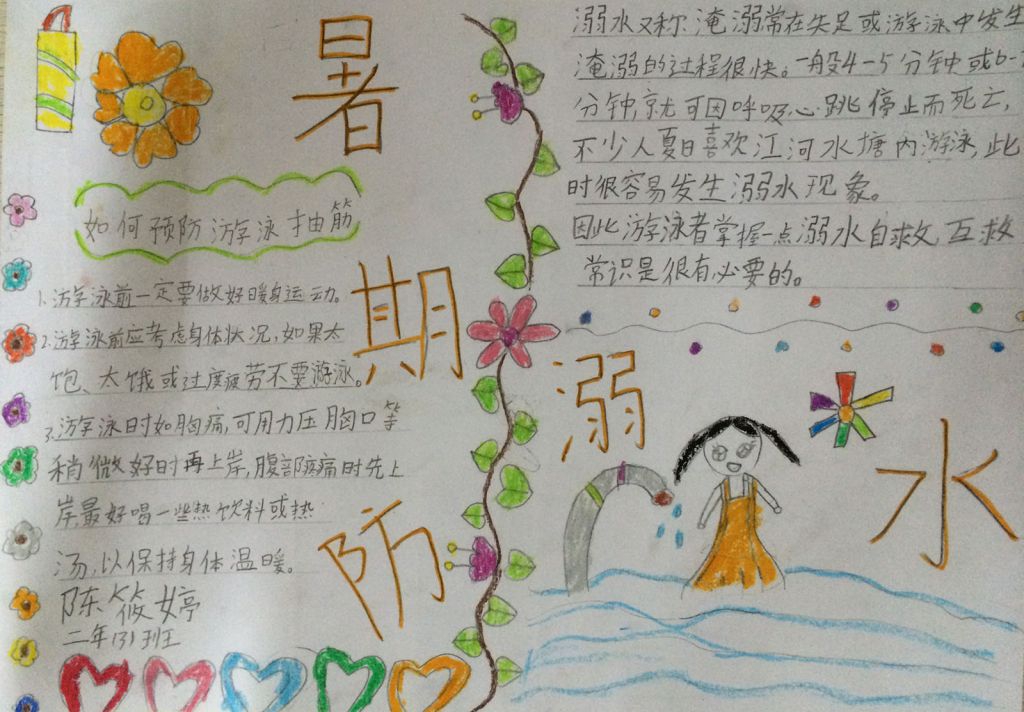 暑
期
防
溺
水
如何预防游泳抽筋
1.游泳前一定要做好暖身运动。
2.游泳前应考虑身体状况,如果太
饱、太饿或过度疲劳不要游泳。
3.游泳时如胸痛,可用力压胸口等
稍微好时再上岸,腹部疼痛时先上
岸最好喝一些热饮料或热
汤,以保持身体温暖。
陈筱婷
二年(3)班
溺水又称淹溺常在失足或游泳中发生
淹溺的过程很快。一般4-5分钟或6-
分钟,就可因呼吸心跳停止而死亡,
不少人夏日喜欢江河水塘内游泳,此
时很容易发生溺水现象。
因此游泳者掌握一点溺水自救互救
常识是很有必要的。